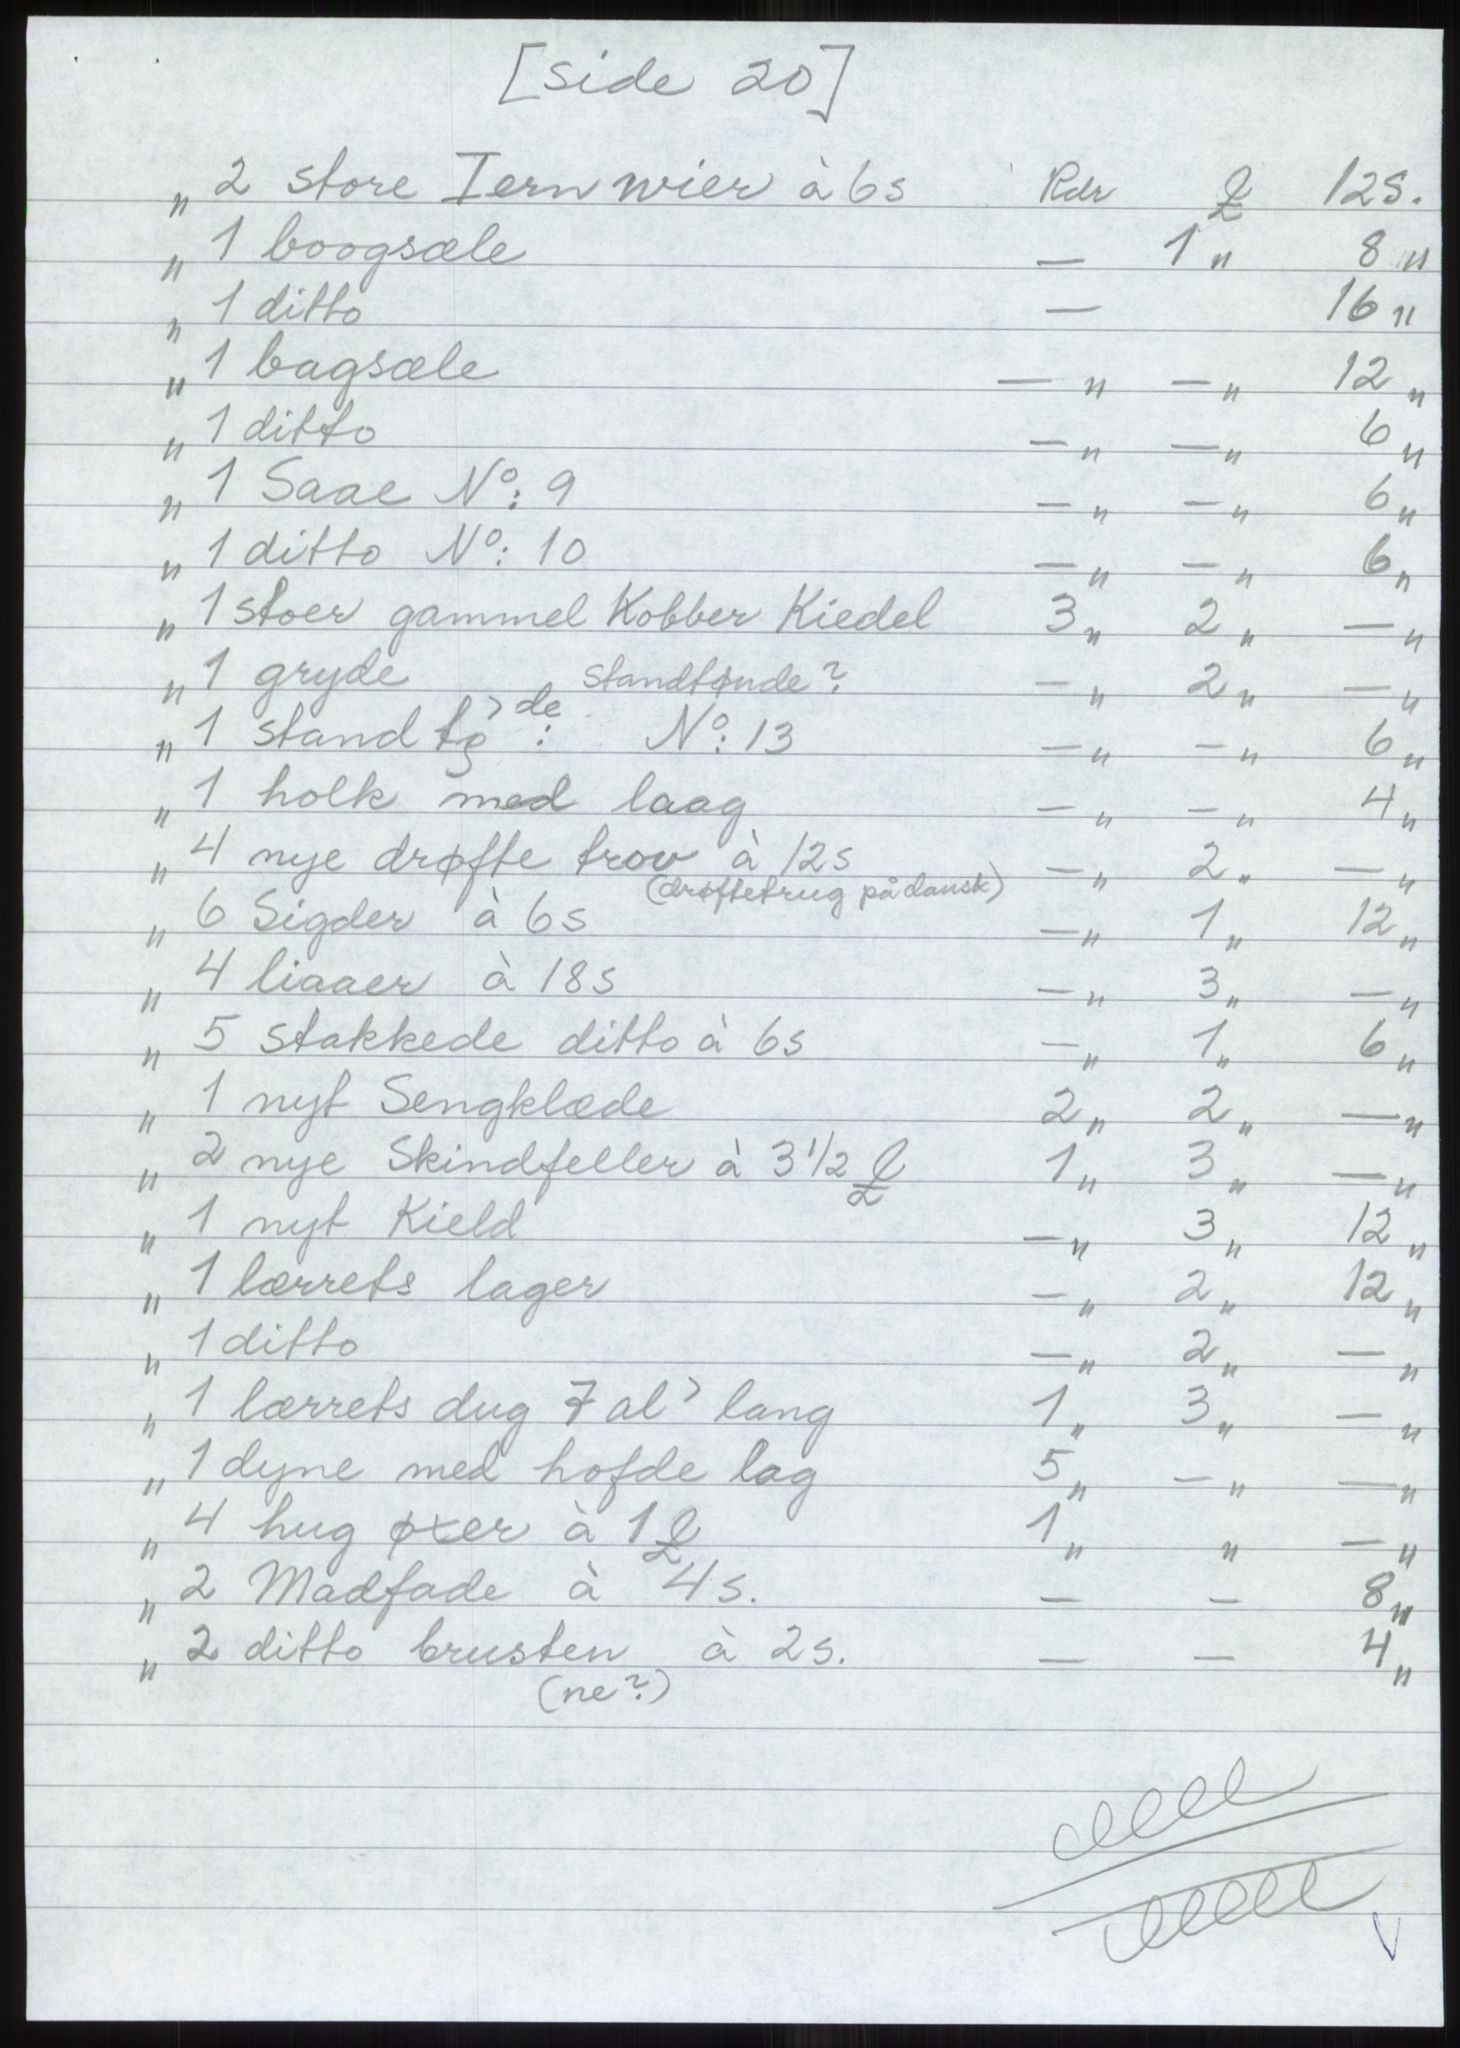 [side 20]
„ 2 store Iern wier à 6s Rdr ₤ 12s.
„ 1 boogsæle — 1„ 8„
„ 1 ditto — 16„
„ 1 bagsæle —„ —„ 12„
„ 1 ditto —„ —„ 6„
„ 1 Saae No: 9 —„ —„ 6„
„ 1 ditto No: 10 —„ —„ 6„
„ 1 stoer gammel Kobber Kiedel 3„ 2„ —„
„ 1 gryde standtønde? —„ 2„ —„
„ 1 stand tø de: No: 13 —„ —„ 6„
„ 1 holk med laag —„ —„ 4„
„ 4 nye drøfte trov à 12s —„ 2„ —„
(drøftetrug på dansk)
„ 6 Sigder à 6s —„ 1„ 12„
„ 4 liaaer à 18s —„ 3„ —„
„ 5 stakkede ditto à 6s —„ 1„ 6„
„ 1 nyt Sengklæde 2„ 2„ —„
„ 2 nye Skindfeller à 3 1/2 ₤ 1„ 3„ —„
„ 1 nyt Kield —„ 3„ 12„
„ 1 lærrets lager —„ 2„ 12„
„ 1 ditto —„ 2„ —„
„ 1 lærrets dug 7 al> lang 1„ 3„ —„
„ 1 dyne med hofde lag 5„ —„ —„
„ 4 hug øxer à 1 ₤ 1„ „ —„
„ 2 Madfade à 4s. — — 8„
„ 2 ditto brusten à 2s. — — 4„
(ne?)